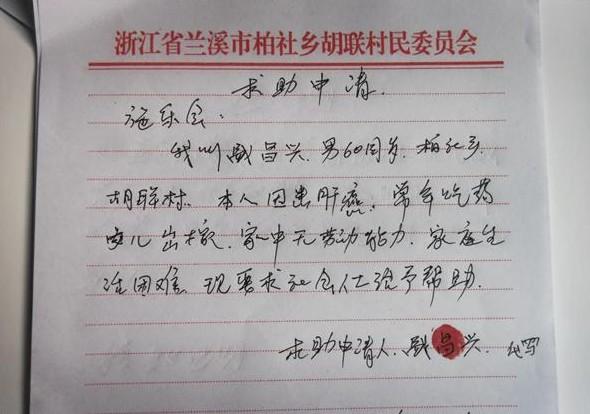 浙江省兰溪市柏社乡胡联村民委员会
求助申请.
施乐会:
我叫戚昌兴.男60周岁.柏社乡
胡联村.本人因患肝癌.常年吃药
儿出嫁.家中无劳动能力.家庭生
活困难.现要求社会给予帮助.
求助申请人.戚昌兴.代写